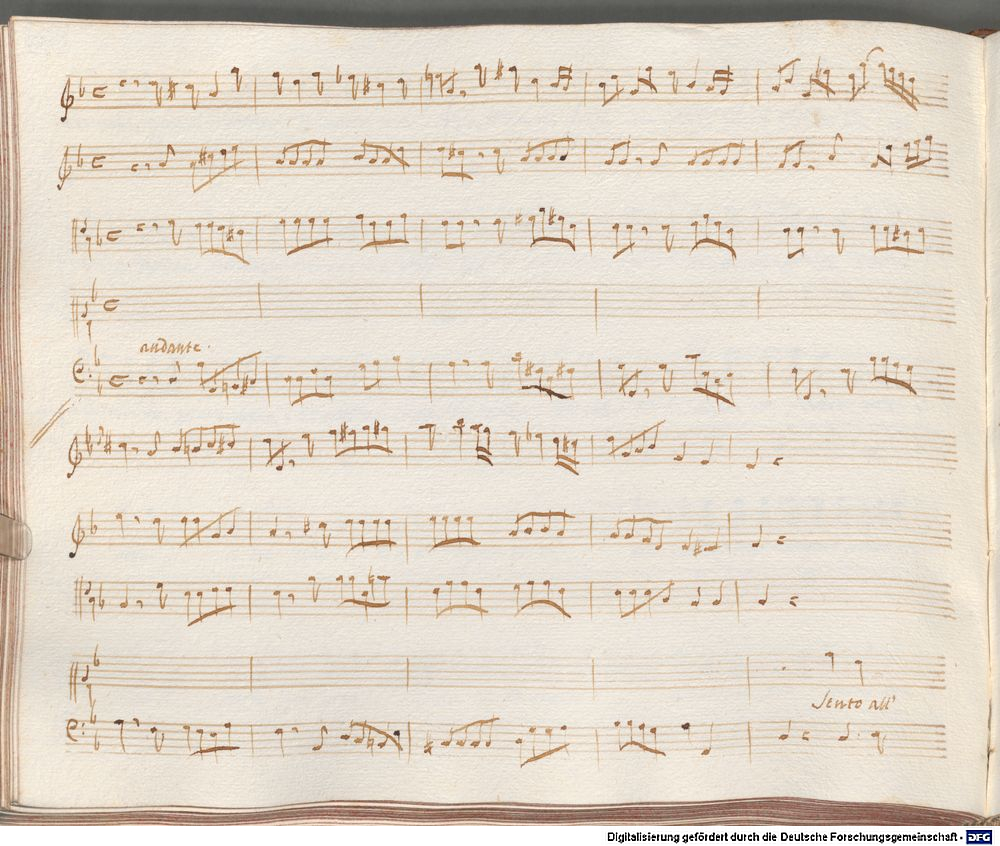 andante.
Sento all'
Digitalisierung gefördert durch die Deutsche Forschungsgemeinschaft - DFG